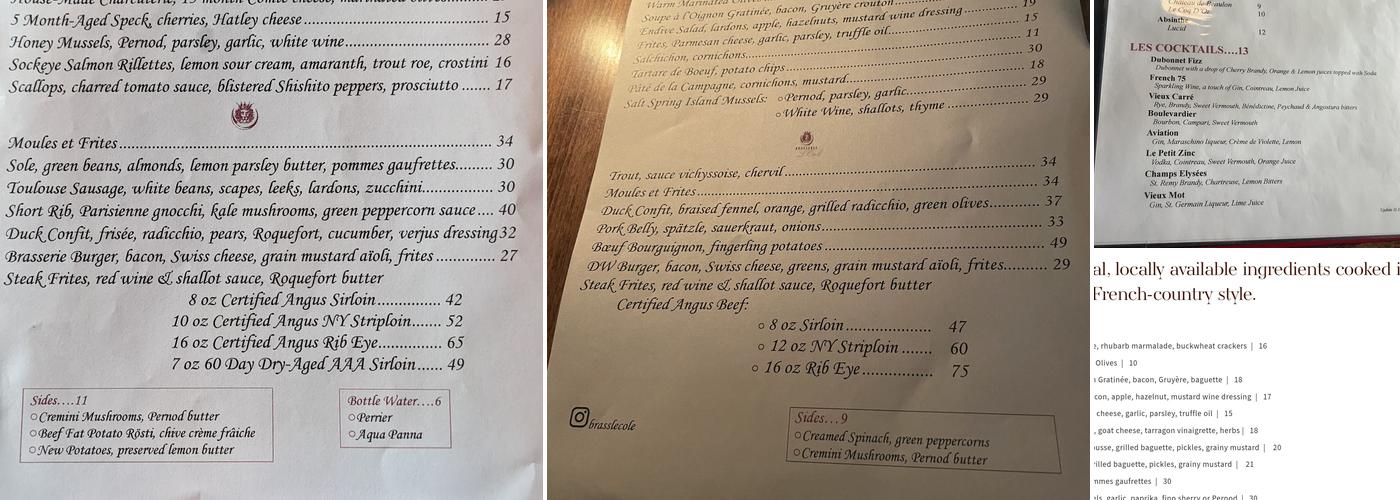 House-Made Charcuterie, 15 month Comté cheese, marinated olives
5 Month-Aged Speck, cherries, Hatley cheese 15
Honey Mussels, Pernod, parsley, garlic, white wine 28
Sockeye Salmon Rillettes, lemon sour cream, amaranth, trout roe, crostini 16
Scallops, charred tomato sauce, blistered Shishito peppers, prosciutto 17
Moules et Frites 34
Sole, green beans, almonds, lemon parsley butter, pommes gaufrettes 30
Toulouse Sausage, white beans, scapes, leeks, lardons, zucchini 30
Short Rib, Parisienne gnocchi, kale mushrooms, green peppercorn sauce 40
Duck Confit, frisée, radicchio, pears, Roquefort, cucumber, verjus dressing 32
Brasserie Burger, bacon, Swiss cheese, grain mustard aïoli, frites 27
Steak Frites, red wine & shallot sauce, Roquefort butter
8 oz Certified Angus Sirloin 42
10 oz Certified Angus NY Striploin 52
16 oz Certified Angus Rib Eye 65
7 oz 60 Day Dry-Aged AAA Sirloin 49
Sides....11
Cremini Mushrooms, Pernod butter
Beef Fat Potato Rösti, chive crème frâiche
New Potatoes, preserved lemon butter
Bottle Water....6
Perrier
Aqua Panna
Warm Marinated Olives
Soupe à l'Oignon Gratinée, bacon, Gruyère crouton 19
Endive Salad, lardons, apple, hazelnuts, mustard wine dressing 15
Frites, Parmesan cheese, garlic, parsley, truffle oil 11
Salchichon, cornichons 30
Tartare de Boeuf, potato chips 18
Pâté de la Campagne, cornichons, mustard 29
Salt Spring Island Mussels: Pernod, parsley, garlic 29
White Wine, shallots, thyme
Trout, sauce vichyssoise, chervil 34
Moules et Frites 34
Duck Confit, braised fennel, orange, grilled radicchio, green olives 37
Pork Belly, spätzle, sauerkraut, onions 33
Bœuf Bourguignon, fingerling potatoes 49
DW Burger, bacon, Swiss cheese, greens, grain mustard aïoli, frites 29
Steak Frites, red wine & shallot sauce, Roquefort butter
Certified Angus Beef:
8 oz Sirloin 47
12 oz NY Striploin 60
16 oz Rib Eye 75
brasslecole
Sides...9
Creamed Spinach, green peppercorns
Cremini Mushrooms, Pernod butter
9
Le Coq D'Or 10
Absinthe
Lucid 12
LES COCKTAILS....13
Dubonnet Fizz
Dubonnet with a drop of Cherry Brandy, Orange & Lemon juices topped with Soda
French 75
Sparkling Wine, a touch of Gin, Cointreau, Lemon Juice
Vieux Carré
Rye, Brandy, Sweet Vermouth, Bénédictine, Peychaud & Angostura bitters
Boulevardier
Bourbon, Campari, Sweet Vermouth
Aviation
Gin, Maraschino liqueur, Crème de Violette, Lemon
Le Petit Zinc
Vodka, Cointreau, Sweet Vermouth, Orange Juice
Champs Elysées
St. Remy Brandy, Chartreuse, Lemon Bitters
Vieux Mot
Gin, St. Germain Liqueur, Lime Juice
al, locally available ingredients cooked i
French-country style.
, rhubarb marmalade, buckwheat crackers | 16
Olives | 10
Gratinée, bacon, Gruyère, baguette | 18
con, apple, hazelnut, mustard wine dressing | 17
cheese, garlic, parsley, truffle oil | 15
, goat cheese, tarragon vinaigrette, herbs | 18
usse, grilled baguette, pickles, grainy mustard | 20
rilled baguette, pickles, grainy mustard | 21
mmes gaufrettes | 30
els, garlic, paprika, fino sherry or Pernod | 30